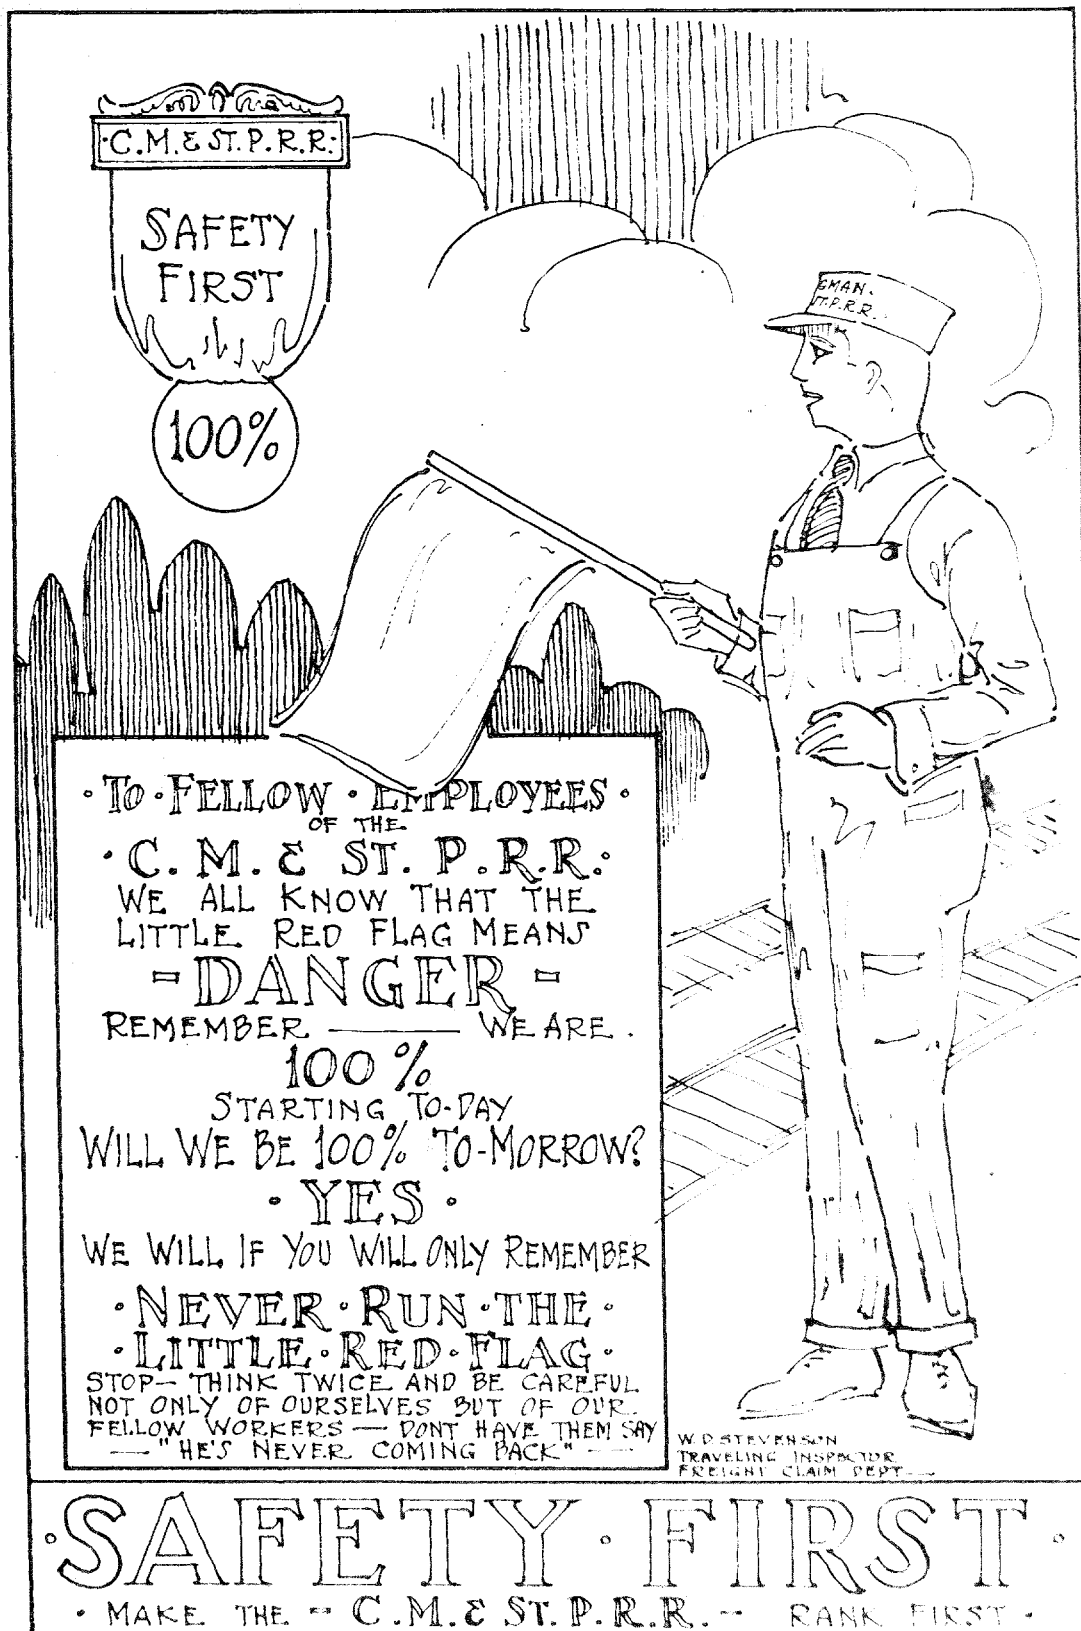 ·C.M.& ST.P.R.R.·
SAFETY
FIRST
100%
GMAN.
ST.P.R.R.
·TO·FELLOW·EMPLOYEES·
OF THE
·C. M. & ST. P.R.R.·
WE ALL KNOW THAT THE
LITTLE RED FLAG MEANS
-DANGER-
REMEMBER — WE ARE.
100%
STARTING TO-DAY
WILL WE BE 100% TO-MORROW?
·YES·
WE WILL IF YOU WILL ONLY REMEMBER
·NEVER·RUN·THE·
·LITTLE·RED·FLAG·
STOP— THINK TWICE AND BE CAREFUL
NOT ONLY OF OURSELVES BUT OF OUR
FELLOW WORKERS — DONT HAVE THEM SAY
— "HE'S NEVER COMING BACK" —
W.D.STEVENSON
TRAVELING INSPECTOR
FREIGHT CLAIM DEPT—
·SAFETY·FIRST·
· MAKE THE -- C.M.& ST.P.R.R.-- RANK FIRST ·